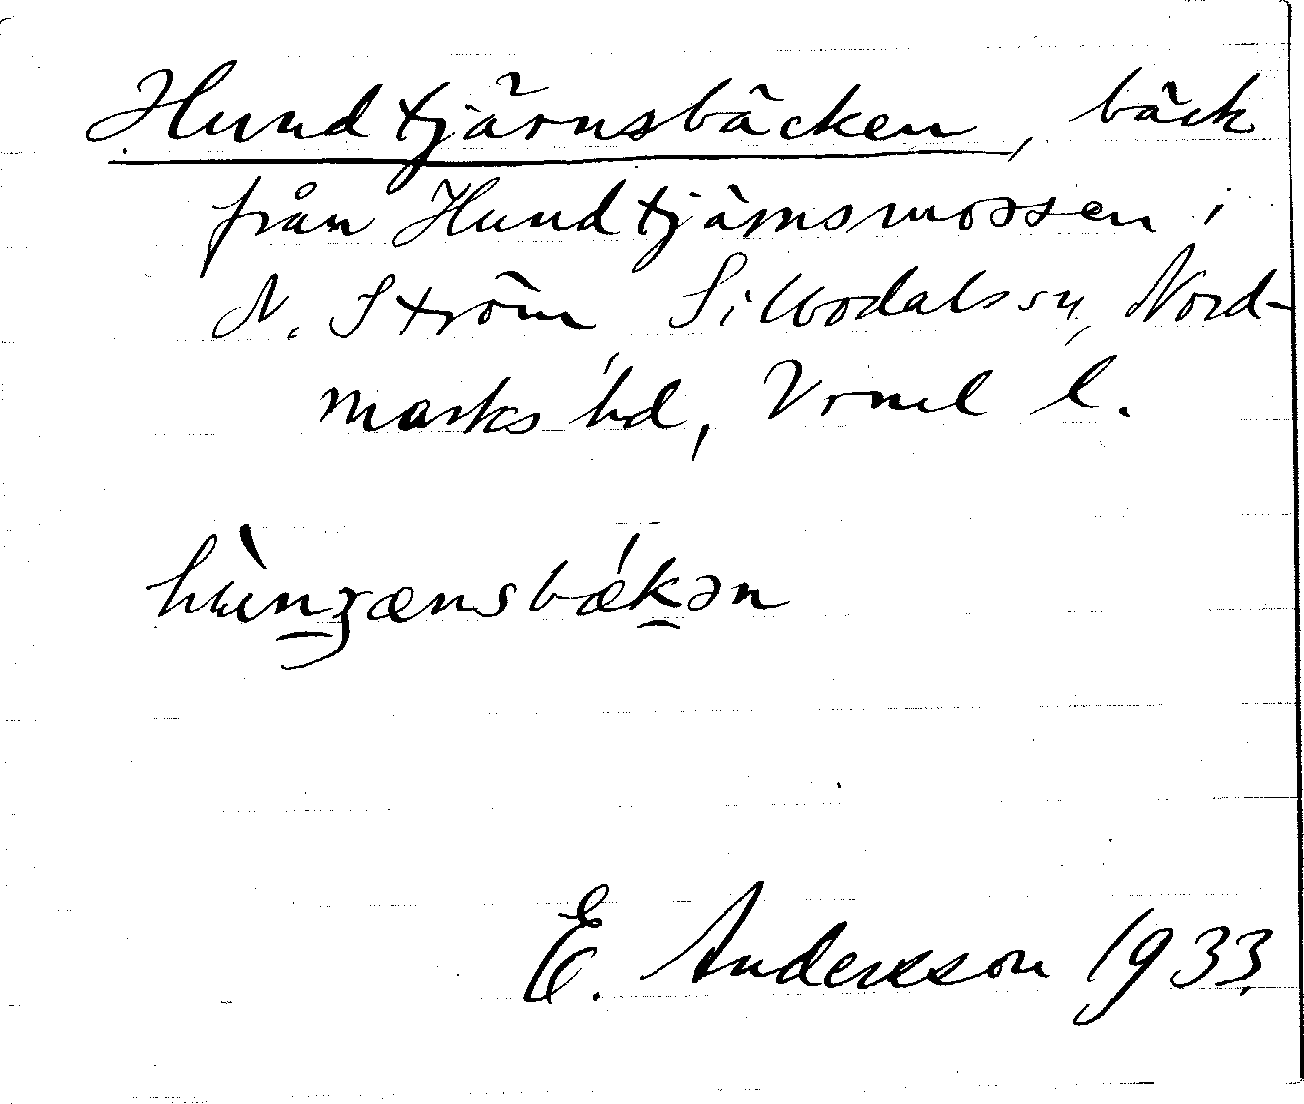 Hundtjärnsbäcken, bäck
från Hundtjärnsmossen i
N. Ström Silbodals sn, Nord-
marks hd, Vrml l.
hùnʒænsbǽkən
E. Andersson 1933.